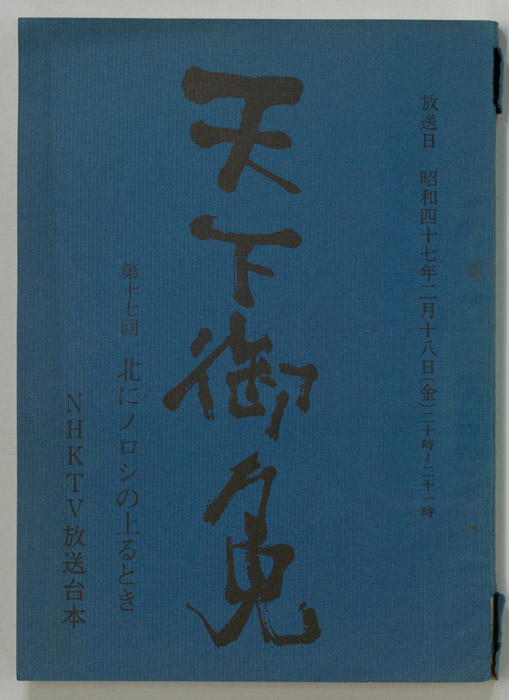 放送日 昭和四十七年二月十八日(金)二十時~二十一時
天下御免
第十七回 北にノロシの上るとき
NHKTV放送台本